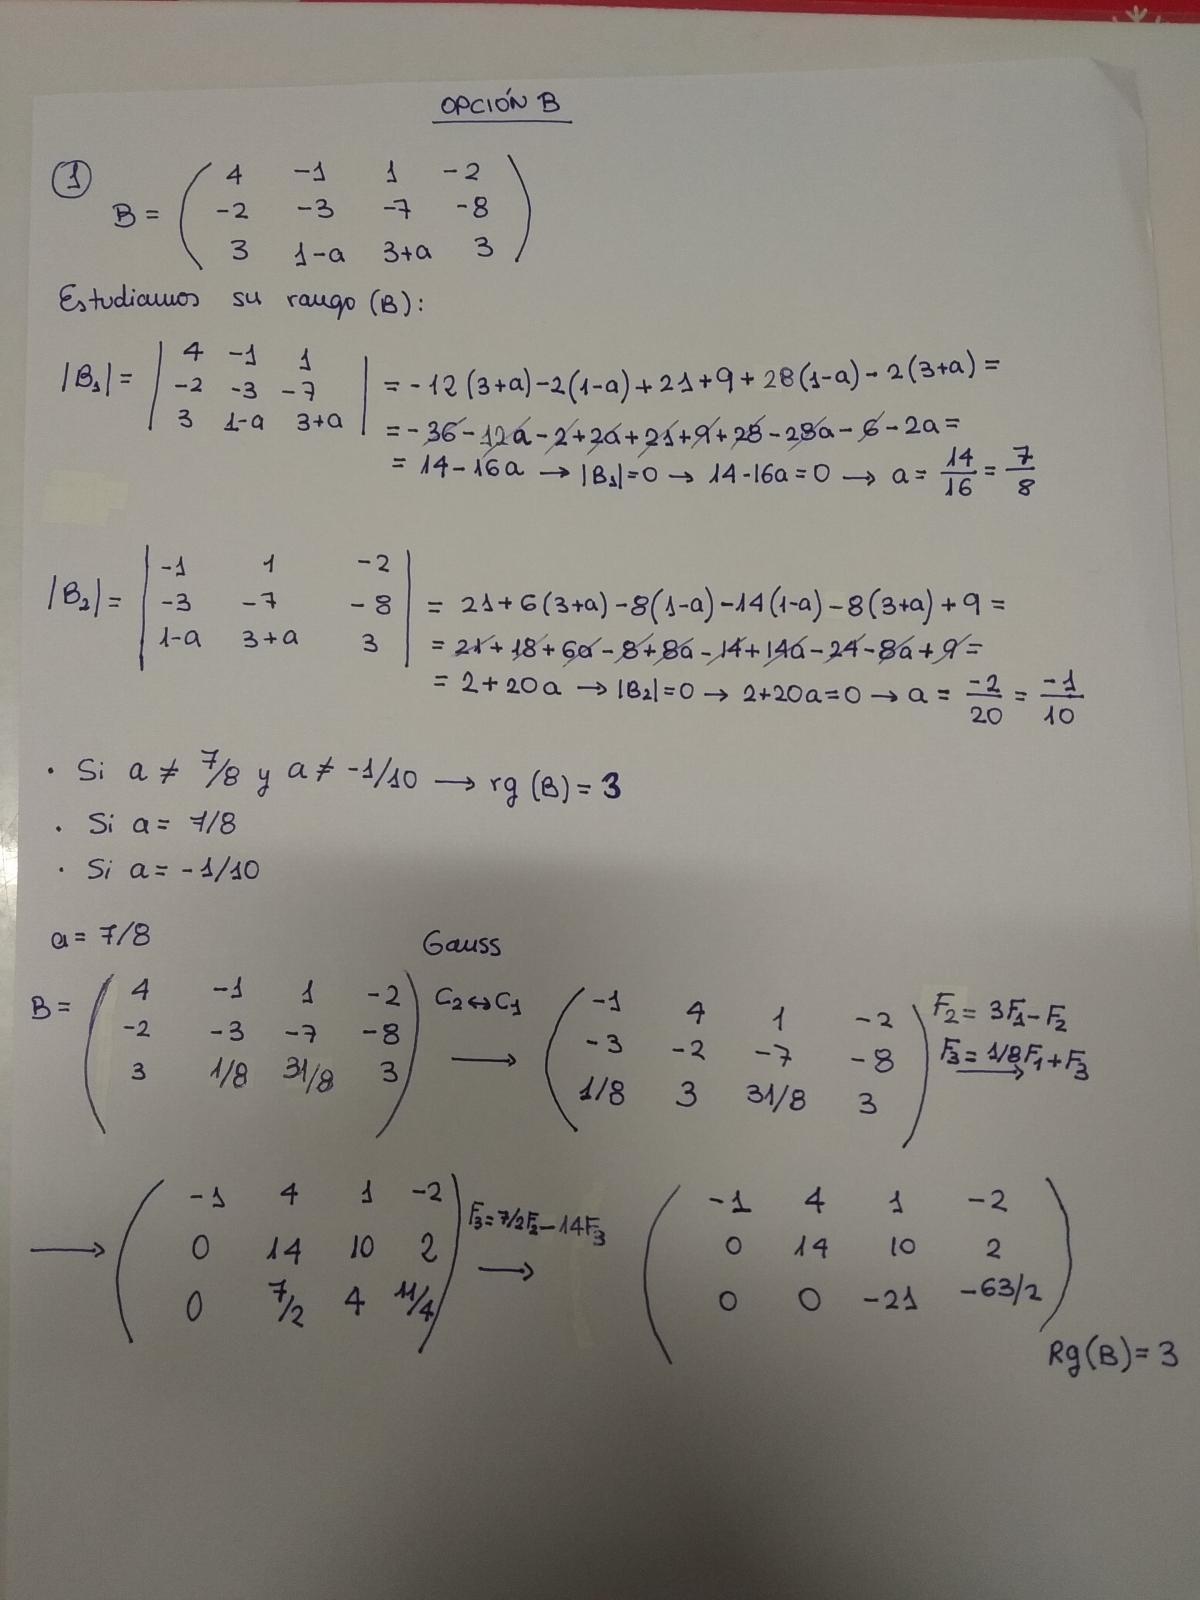 OPCIÓN B
① B = ( 4 -1 1 -2
-2 -3 -7 -8
3 1-a 3+a 3 )
Estudiamos su rango (B):
|B₁| = | 4 -1 1
-2 -3 -7
3 1-a 3+a | = -12(3+a)-2(1-a)+21+9+28(1-a)-2(3+a) =
= -36-12a-2+2a+21+9+28-28a-6-2a =
= 14-16a → |B₁|=0 → 14-16a=0 → a = 14/16 = 7/8
|B₂| = | -1 1 -2
-3 -7 -8
1-a 3+a 3 | = 21+6(3+a)-8(1-a)-14(1-a)-8(3+a)+9 =
= 21+18+6a-8+8a-14+14a-24-8a+9 =
= 2+20a → |B₂|=0 → 2+20a=0 → a = -2/20 = -1/10
· Si a ≠ 7/8 y a ≠ -1/10 → rg (B) = 3
· Si a = 7/8
· Si a = -1/10
a = 7/8 Gauss
B = ( 4 -1 1 -2
-2 -3 -7 -8
3 1/8 31/8 3 ) C₂↔C₁ → ( -1 4 1 -2
-3 -2 -7 -8
1/8 3 31/8 3 ) F₂ = 3F₁-F₂
F₃ = 1/8F₁+F₃ →
→ ( -1 4 1 -2
0 14 10 2
0 7/2 4 11/4 ) F₃=7/2F₂-14F₃ → ( -1 4 1 -2
0 14 10 2
0 0 -21 -63/2 )
Rg(B) = 3